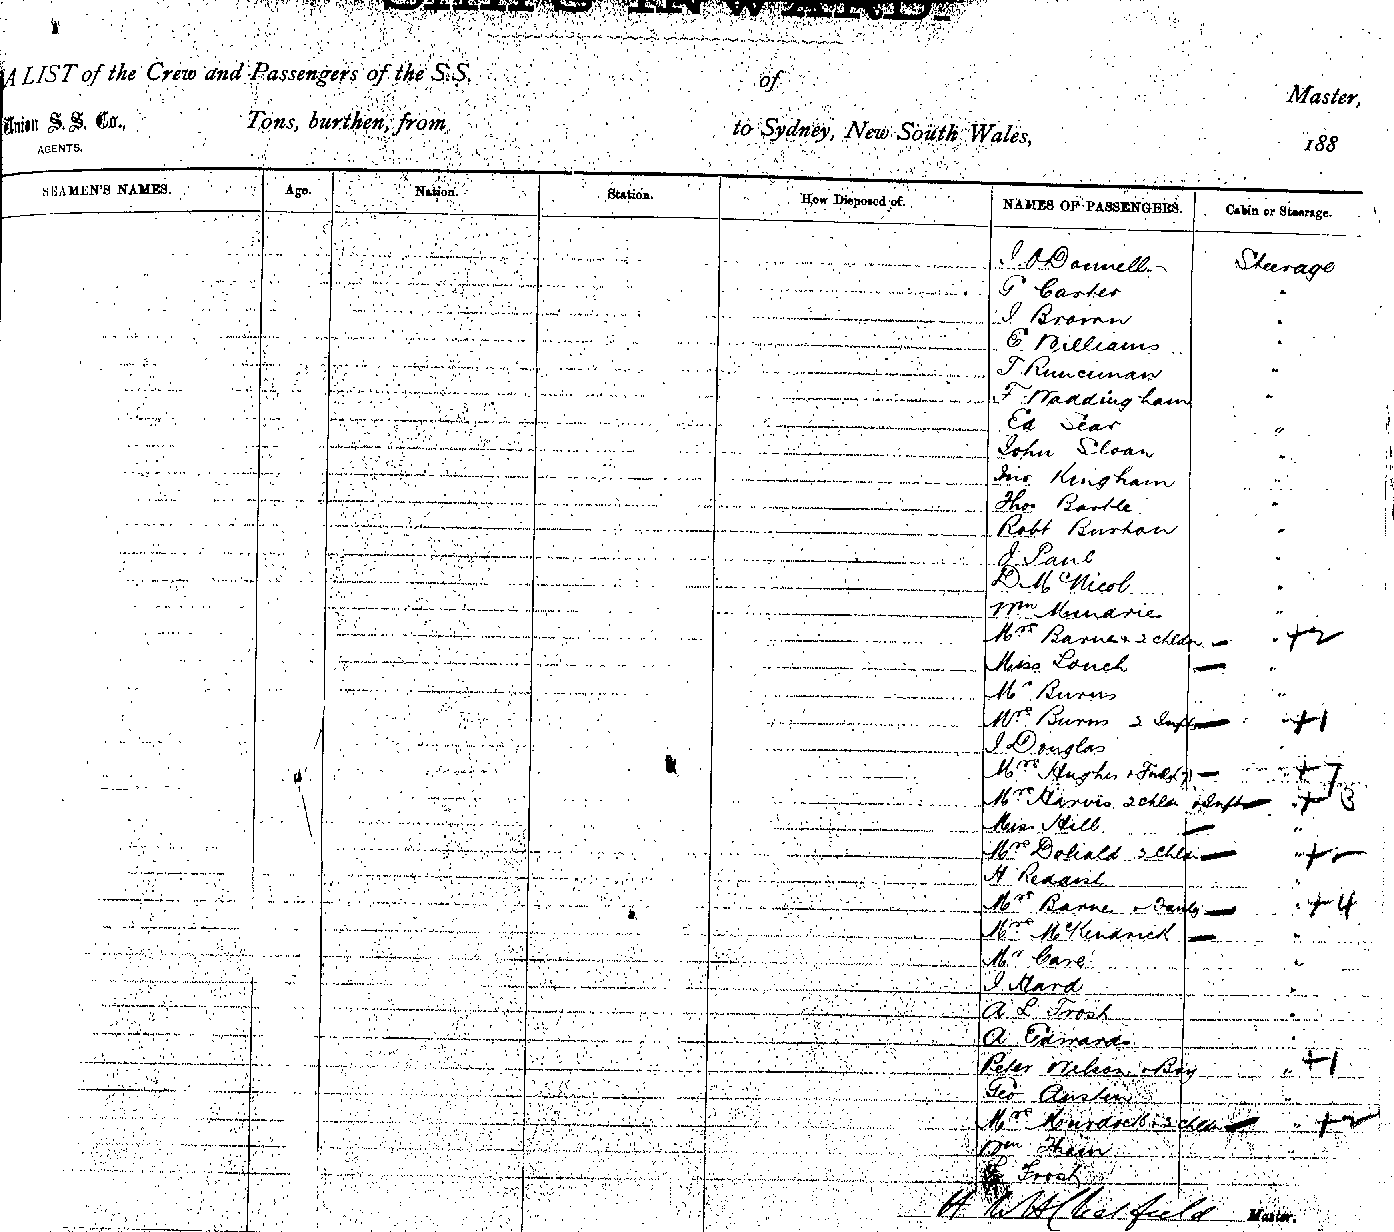 SHIPS INWARD.
A LIST of the Crew and Passengers of the S.S. of Master,
Union S. S. Co., Tons, burthen, from to Sydney, New South Wales, 188
AGENTS.
SEAMEN'S NAMES. Age. Nation. Station. How Disposed of. NAMES OF PASSENGERS. Cabin or Steerage.
J O'Donnell Steerage
G Carter "
J Brown "
E Williams "
T Runciman "
F Waddingham "
Ed Sear "
John Sloan "
Jno Kingham "
Thos Bartle "
Robt Burton "
J Paul "
D McNicol "
Wm Mundrie "
Mrs Barnes + 2 chldn — " +2
Miss Louch — "
Mr Burns "
Mrs Burns 2 Inft — " +1
J Douglas "
Mrs Hughes — +7
Mrs Harvis 2 chldn + Inft — " + 3
Miss Hill — "
Mrs Donald 2 chldn — " +
H Redant "
Mrs Barne + Family — " +4
Mrs McKendrick — "
Mr Care "
J Hard "
A L Frost "
A Edwards "
Peter Nelson + Boy " +1
Geo Austin "
Mrs Murdoch + 2 chldn — " +2
Wm Thain "
Frost
Master.